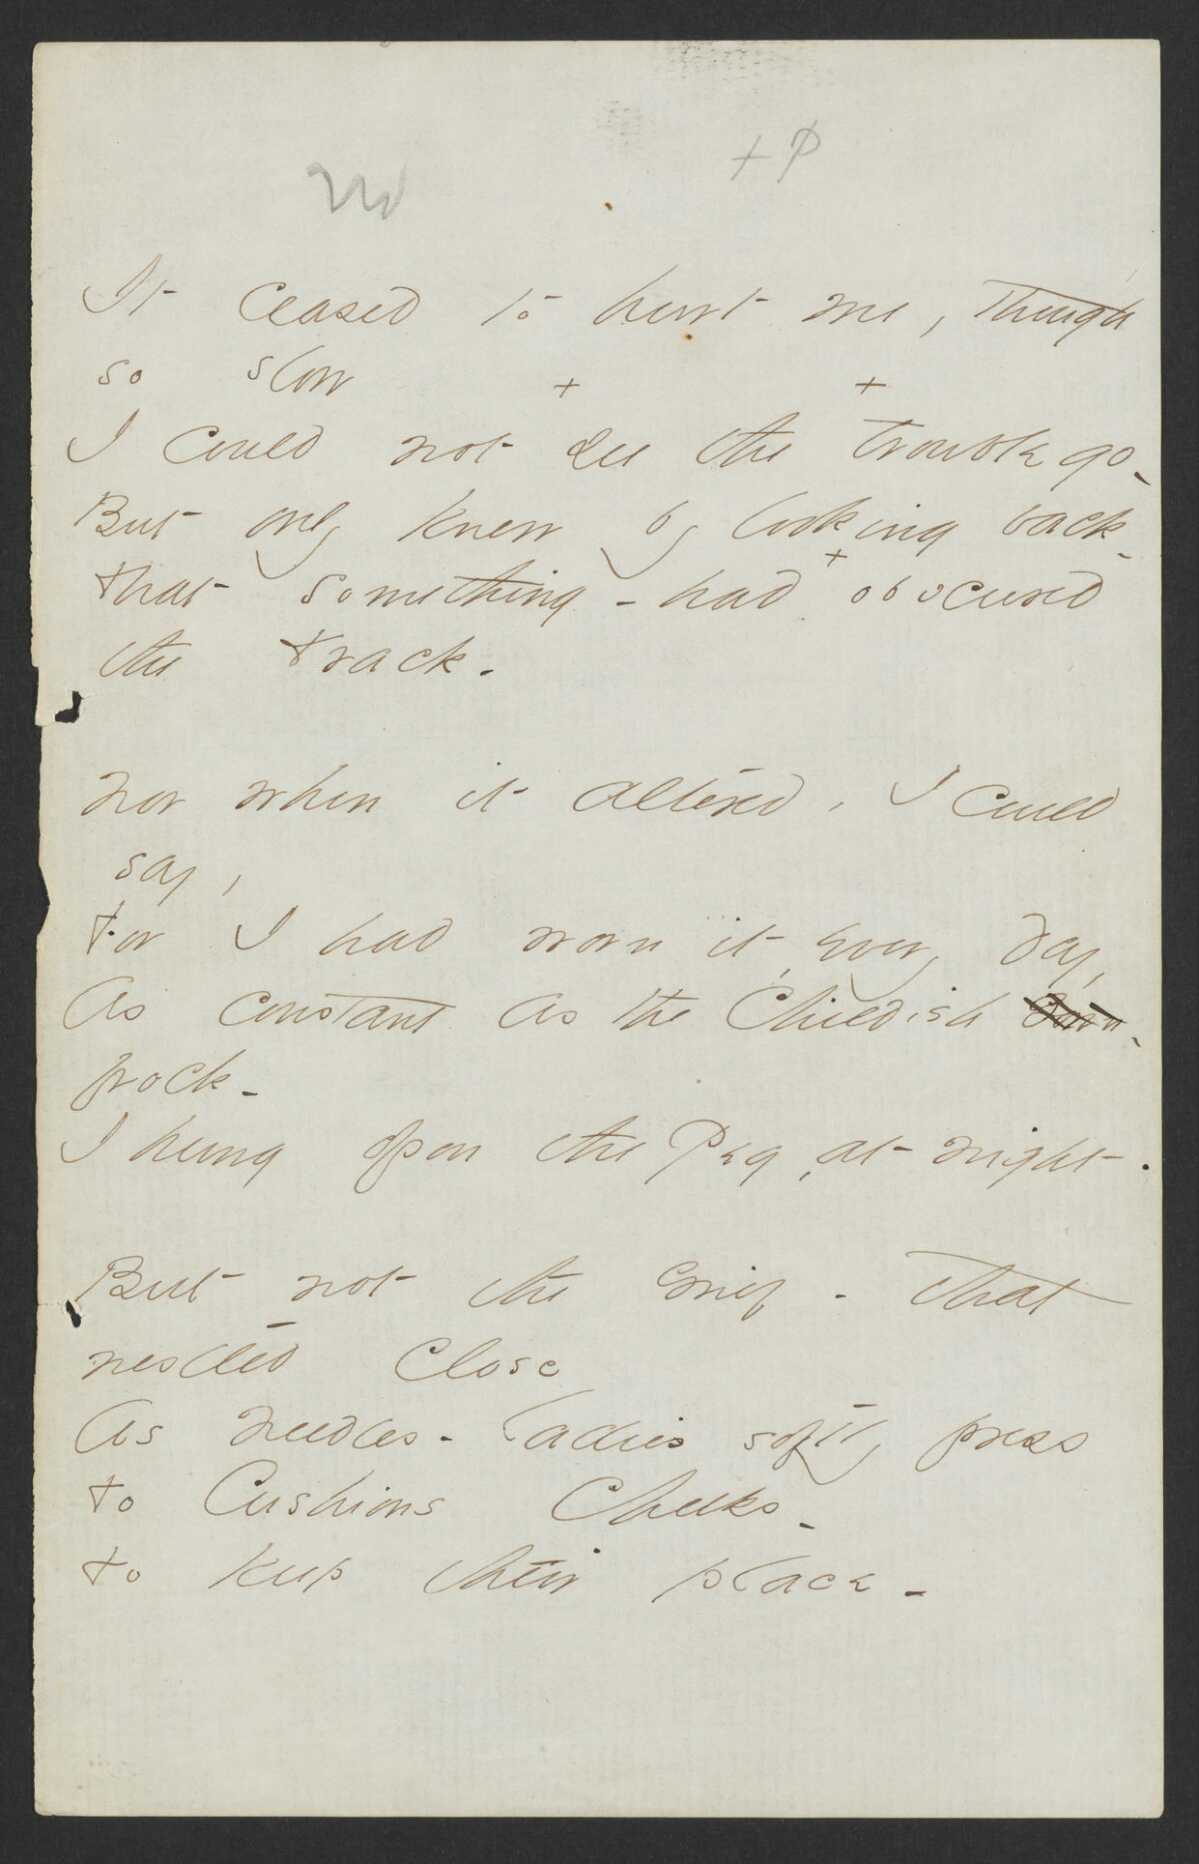 + P
It ceased to hurt me, though
so slow
+ +
I could not see the trouble go -
But only knew by looking back -
+
That something - had obscured
the track -
Nor when it altered, I could
say,
For I had worn it, every day,
As constant as the Childish
frock -
I hung opon the Peg, at night.
But not the Grief - that
nestled close
As needles - ladies softly press
To Cushions Cheeks -
To keep their place -